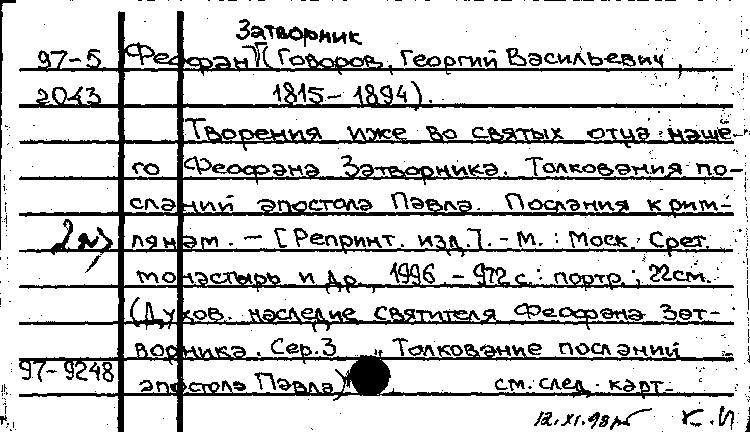 Затворник
97-5 Феофан (Говоров, Георгий Васильевич,
2043 1815-1894).
Творения иже во святых отца наше-
го Феофана Затворника. Толкования по-
сланий апостола Павла. Послания к рим-
лянам. - [Репринт. изд.]. - М. : Моск. Срет.
монастырь и др., 1996 - 972 с. : портр. ; 22см.
(Духов. наследие святителя Феофана Зат-
ворника. Сер.3 „Толкование посланий
97-9248 апостола Павла) см. след. карт.
12.XI.98 К.И